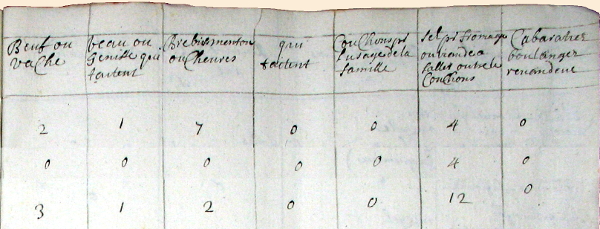 Beuf ou
vache
veau ou
Genisse qui
taitent
Brebis menton
ou cheures
qui
taitent
Couchons pr
l'usage de la
famille
Sel pr fromage
ou viande a
saller outre le
Couchons
Cabaratier
boulanger
revandeur
2 1 7 0 0 4 0
0 0 0 0 0 4 0
3 1 2 0 0 12 0